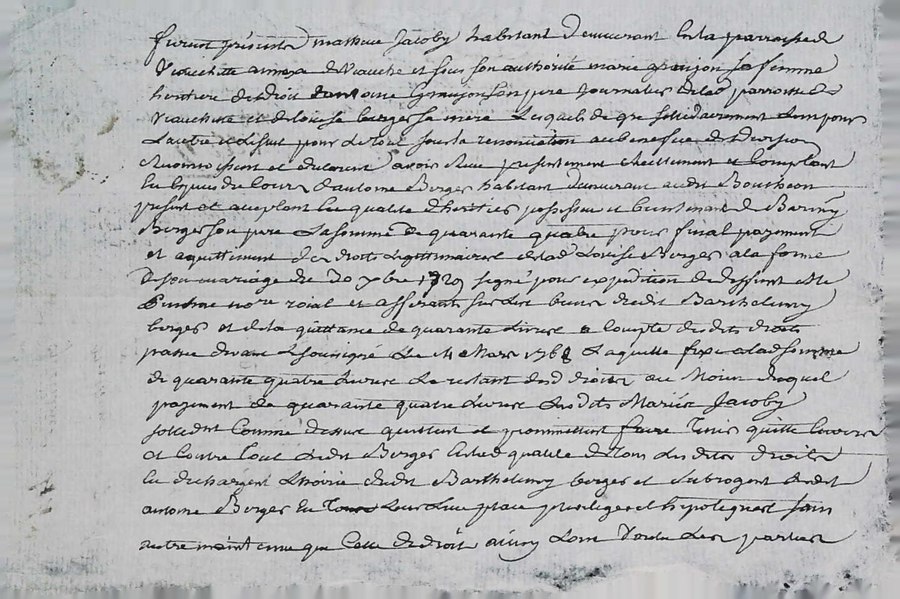 furent présents mathieu Jacoby habitant demeurant en la parroisse de
Veauchette annexe de Veauche et sous son authorité marie granjon sa femme
heritiere de droit dantoine Granjon son pere Journalier de lad parroisse de
Veauchette et de louise berger sa mere Lesquels de gre solidairement Lun pour
Lautre et Lseul pour Letout sous la renonciation au benefice de division
Reconnoissent et declarent avoir Reçu presentement Reellement et Comptant
en especes de Cours dantoine Berger habitant demeurant audit Boutheon
présent et acceptant En qualité dheritier possesseur et bientenant de
Berger son pere La somme de quarante quatre pour final payement
et acquittement des droits Legitimaires de lad Louise Berger a la forme
de son mariage du 30 xbre 1729 signé pour expedition de deffunt
notre roial et afferants sur Les biens dudit Barthelemy
berger et de la quittance de quarante Livres a Compte desdits droits
passée devant Lsousigné Le mars 1768 Laquelle fixe a lad somme
de quarante quatre Livres Le restant desd droits au Moien duquel
payement de quarante quatre Livres Lesdits Mariés Jacoby
solidnt Comme dessus quittent et promettent faire Tenir quitte Envers
Et Contre tout Ledit Berger En lad qualité de tous Lesdits droits
en dechargent Lhoirie dudit Barthelemy berger et subrogent Ledit
antoine Berger en Leur Lieu place privilege et hipoteques sans
autre maintenue que Celle de droit ainsy Lont Voulu Les parties